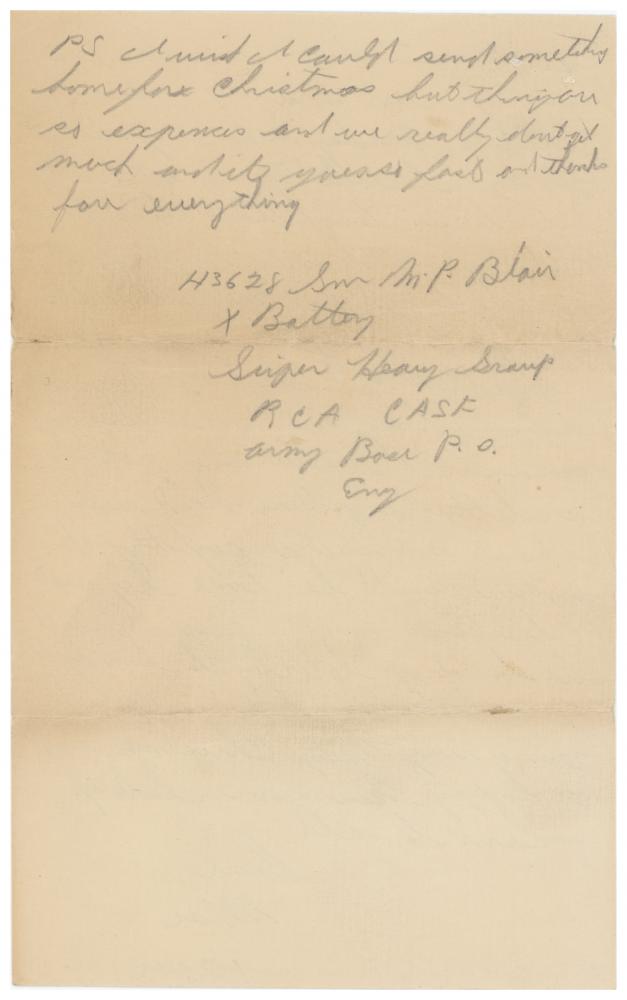 PS I wish I could send something
home for Christmas but things are
so expences and we really dont get
much and its goes so fast and thanks
for everything
H3628 Gnr M.P. Blair
X Battery
Super Heavy Group
RCA CASF
Army Base P.O.
Eng